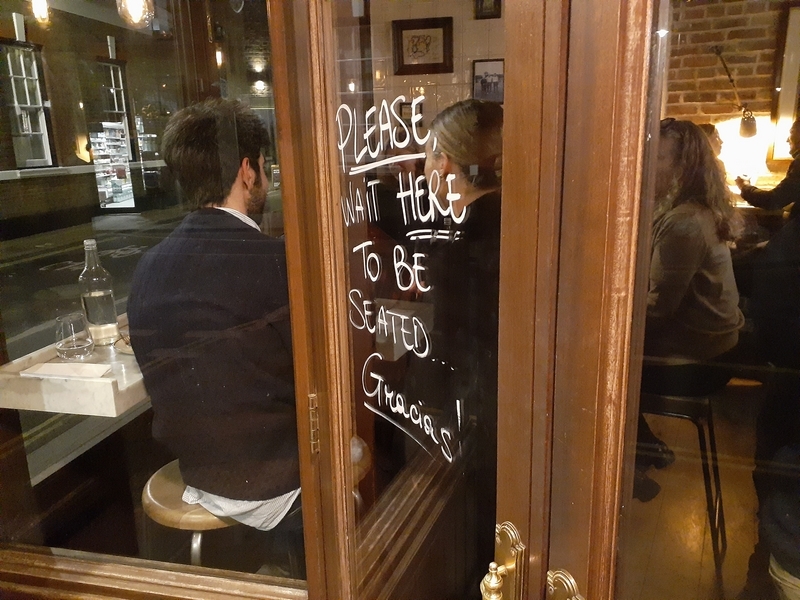 PLEASE,
WAIT HERE
TO BE
SEATED...
Gracias!